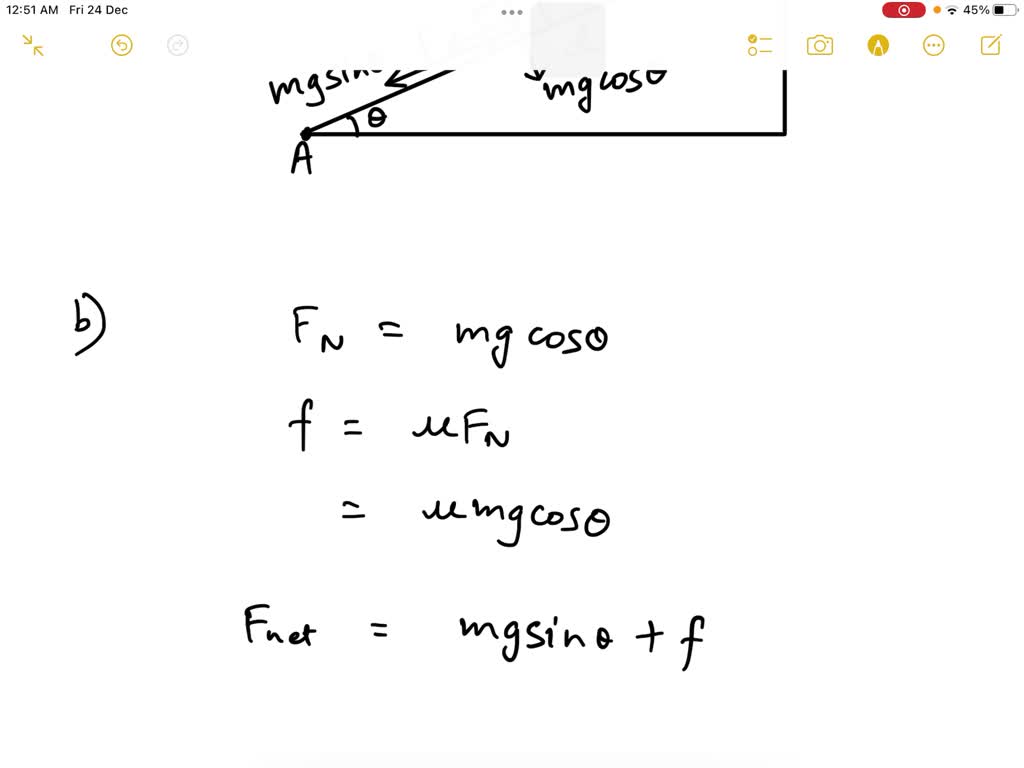 12:51 AM Fri 24 Dec 45%
mgcosθ
θ
A
b) F_N = mg cosθ
f = μF_N
= μmgcosθ
F_net = mgsinθ + f